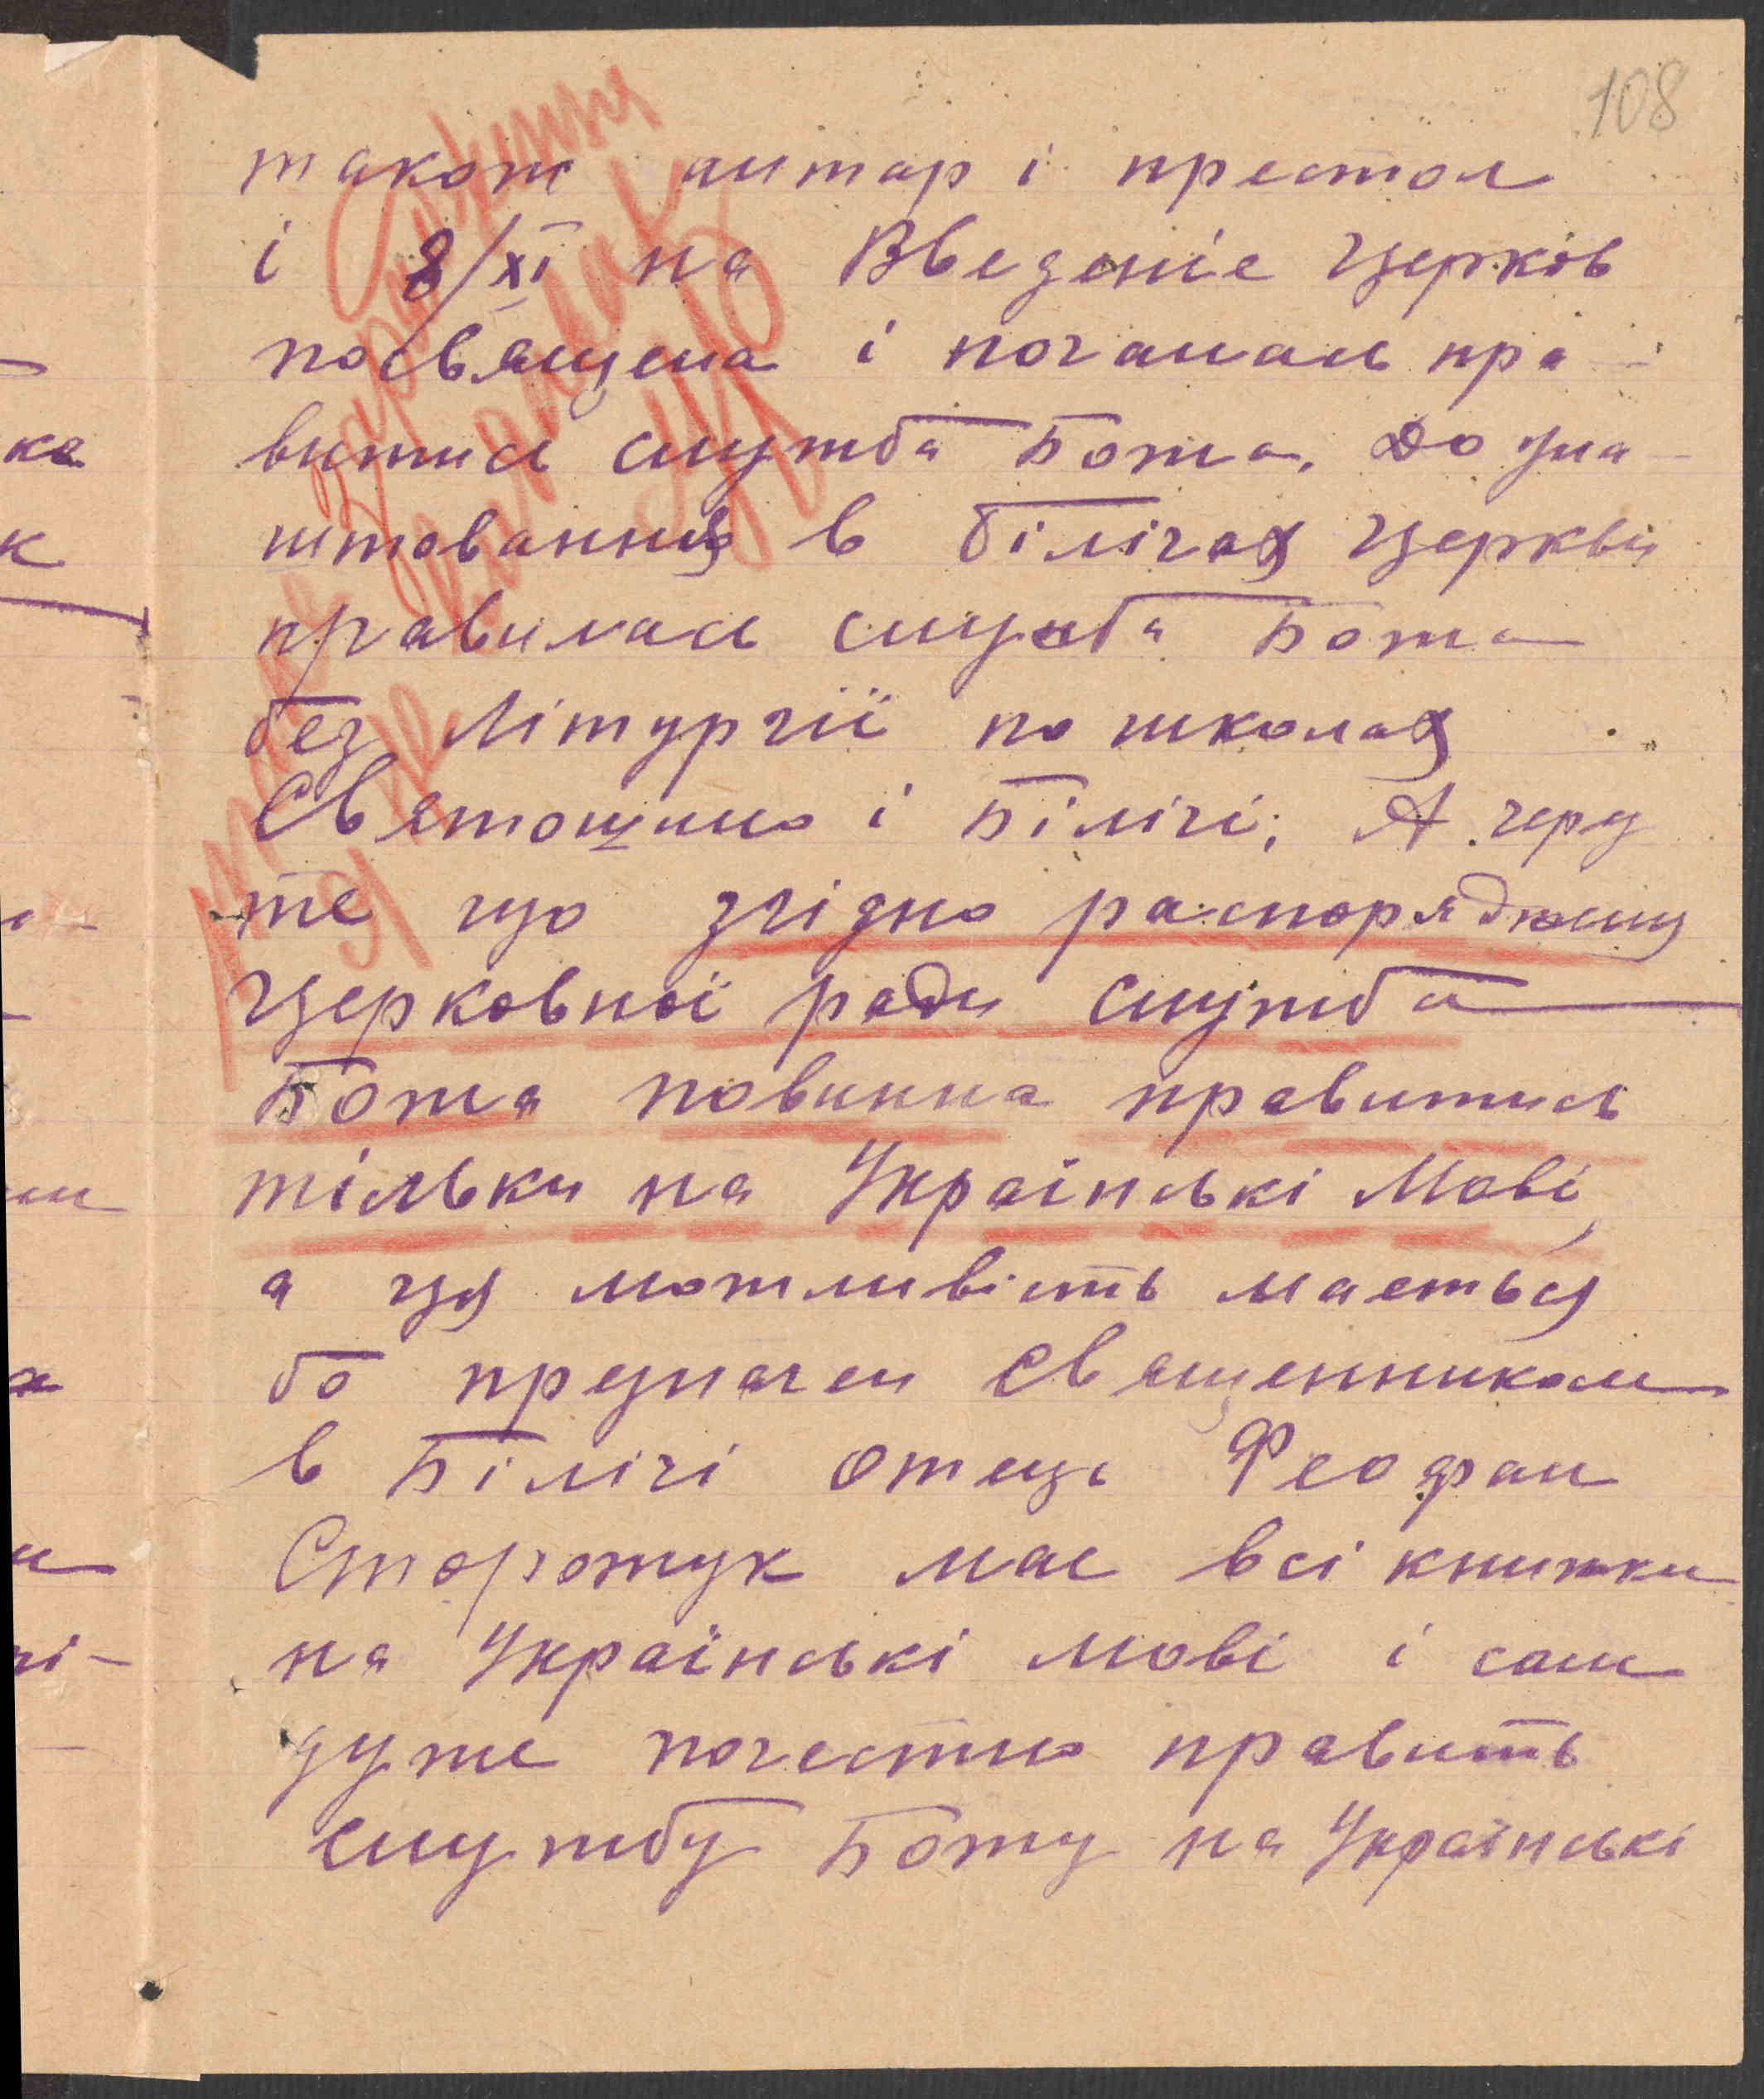 108
також литар і престол
і 8/XI на Введеніе Церков
посвящена і почалась пра-
витись служба Божа, До ула-
штованния в Білічах Церкви
правилась служба Божа
без Літургії по школах
Святошино і Білічі; А через
те що згідно распорядженню
Церковної ради служба
Божа повинна правитись
тільки на Українські Мові,
а цяможливість мається
бо предначен Священником
в Білічі Отець Феофан
Сторожук має всі книжки
на Українські мові і сам
дуже почестно править
службу Божу на Українські